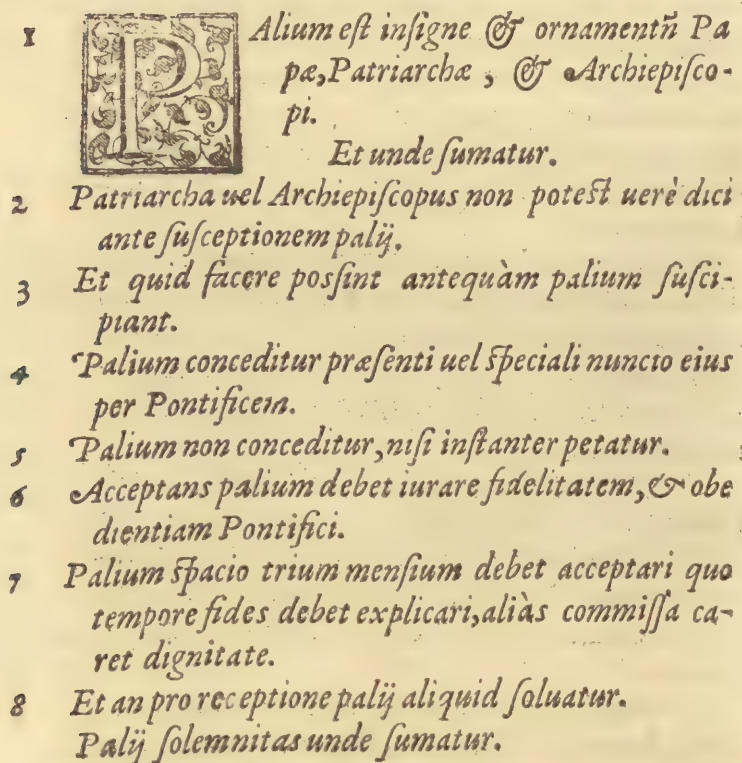 1 PAlium eſt inſigne & ornamentũ Pa
pæ, Patriarchæ, & Archiepiſco-
pi.
Et unde ſumatur.
2 Patriarcha uel Archiepiſcopus non poteſt uerè dici
ante ſuſceptionem palij.
3 Et quid facere poſſint antequàm palium ſuſci-
piant.
4 Palium conceditur præſenti uel ſpeciali nuncio eius
per Pontificem.
5 Palium non conceditur, niſi inſtanter petatur.
6 Acceptans palium debet iurare fidelitatem, & obe
dientiam Pontifici.
7 Palium ſpacio trium menſium debet acceptari quo
tempore fides debet explicari, aliàs commiſſa ca-
ret dignitate.
8 Et an pro receptione palij aliquid ſoluatur.
Palij ſolemnitas unde ſumatur.